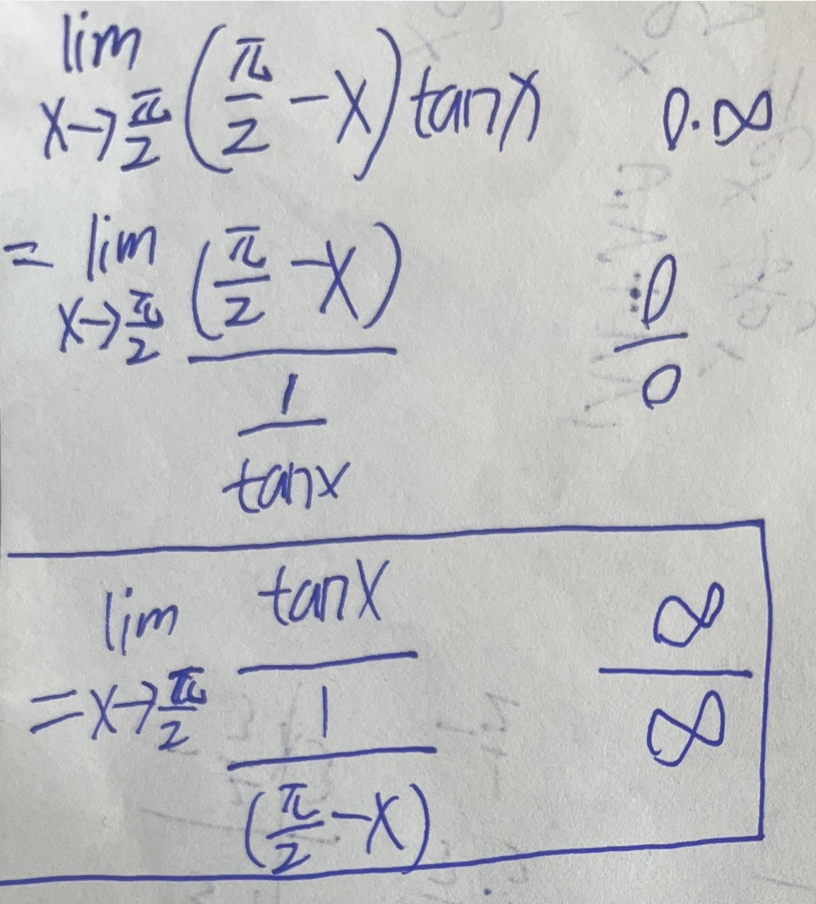 lim x→π/2 (π/2 - x) tan x    0·∞
= lim x→π/2 (π/2 - x) / (1 / tan x)    0/0
= lim x→π/2 tan x / (1 / (π/2 - x))    ∞/∞